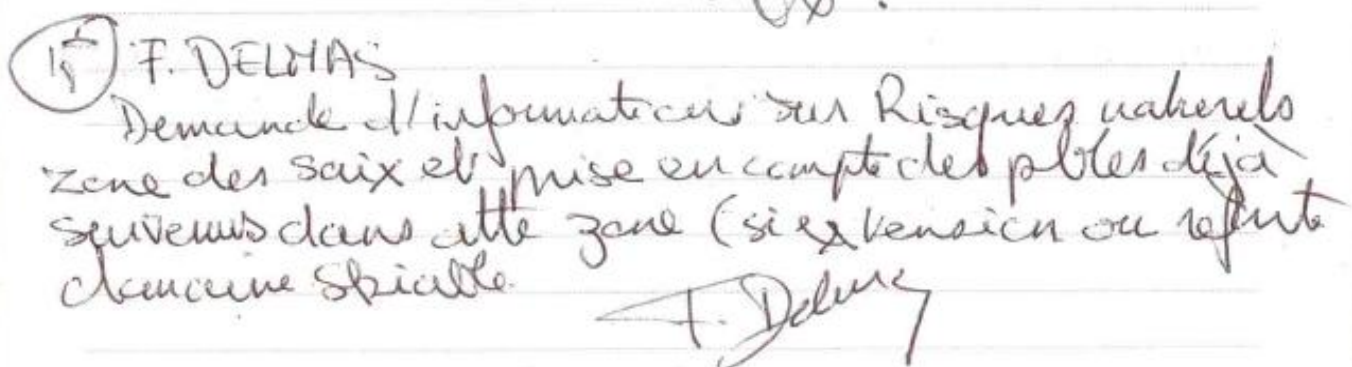 F. DELMAS
Demande d'information sur Risques naturels
zone des Saix et prise en compte des pbles déjà
survenus dans cette zone (si extension ou refonte
domaine skiable
F. Delmas